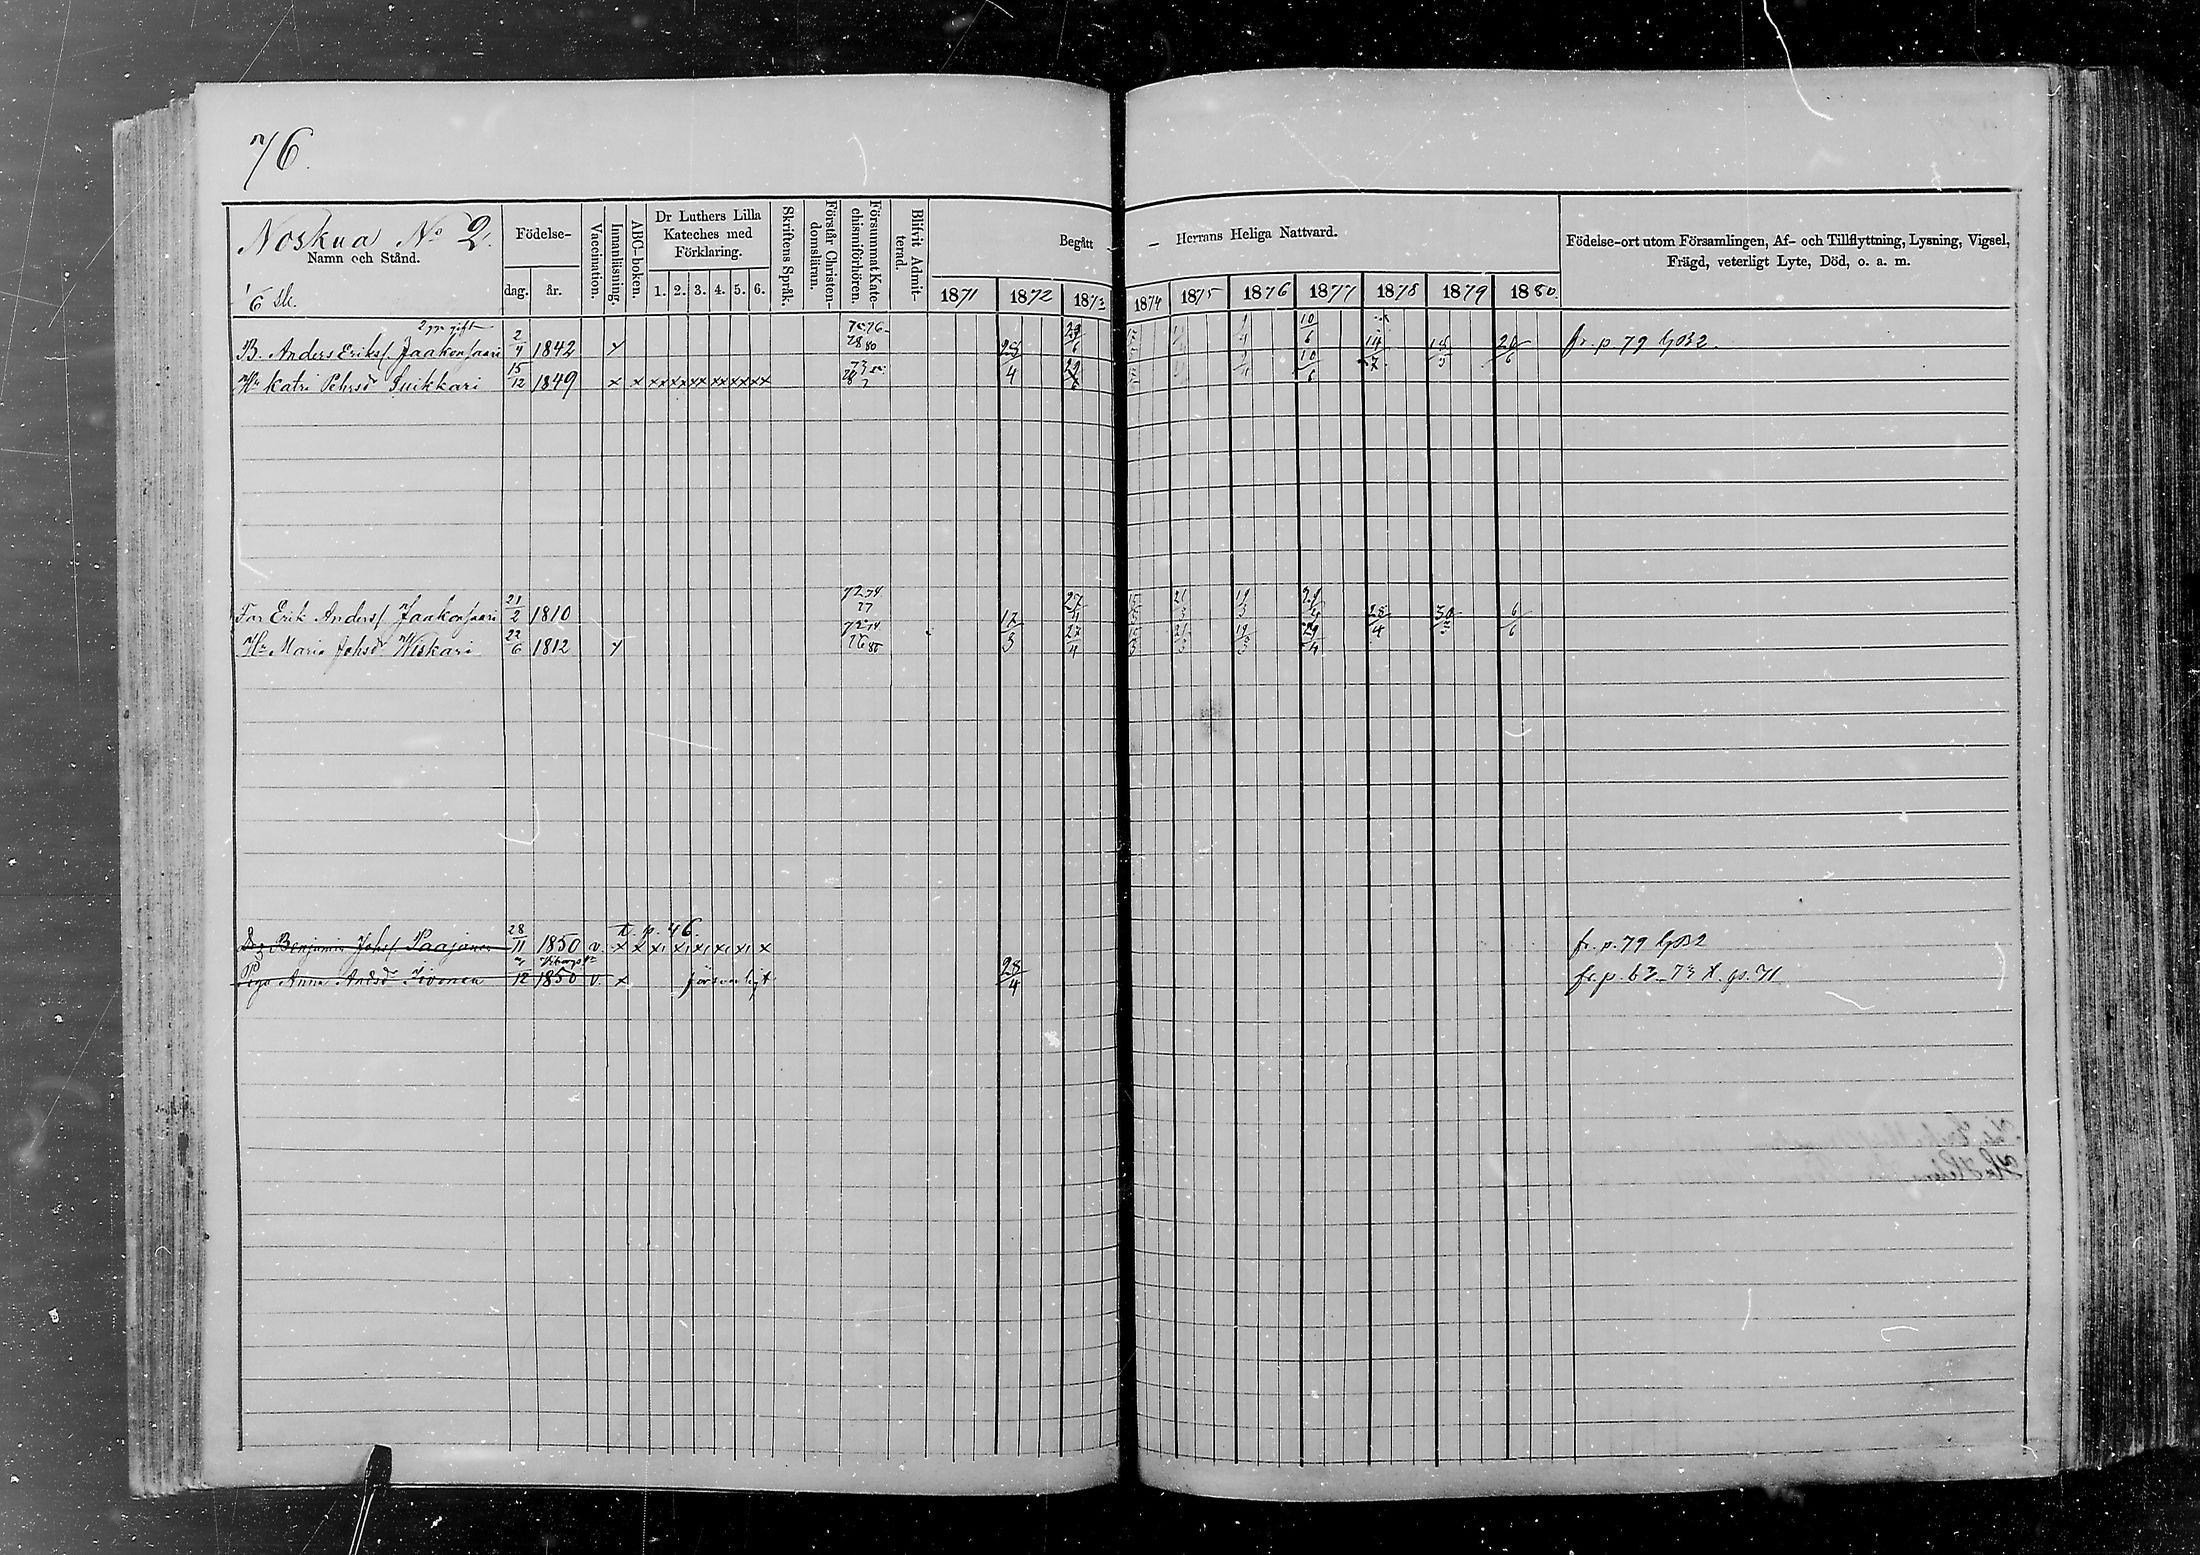 76.
Noskua No 2.
Namn och Stånd.
Födelse-
dag. år.
Vaccination.
Innanläsning.
ABC-boken.
Dr Luthers Lilla
Kateches med
Förklaring.
1. 2. 3. 4. 5. 6.
Skriftens Språk.
Förstår Christen-
domsläran.
Försummat Kate-
chismiförhören.
Blifvit Admit-
terad.
Begått
— Herrans Heliga Nattvard.
1871 1872 1873 1874 1875 1876 1877 1878 1879 1880.
Födelse-ort utom Församlingen, Af- och Tillflyttning, Lysning, Vigsel,
Frägd, veterligt Lyte, Död, o. a. m.
1/6
2 gr gift
B. Anders Eriks. Jaakonsaari 2/4 1842 28/4 29/6 10/6 14/7 20/6 fr. p. 79 LB 2.
Hu Katri Pehrsd Suikkari 15/12 1849 x x x x x x x x x 29/6 10/6
Far Erik Anders. Jaakonsaari 21/2 1810 72 74 77 17/3 27/4 21/3 19/3 29/4 28/4 30/3 6/6
Hu Maria Johsd Wiskari 22/6 1812 72 74 76 80 27/4 21/3 19/3 29/4
t. p. 46.
Drg Benjamin Johs. Paajanen 28/11 1850 v. x x x x x x x x fr. p. 79 LB 2
Wiborgs
Pig Anna Andsd Iivonen 12 1850 v. x försvarligt 28/4 fr. p. 63 73